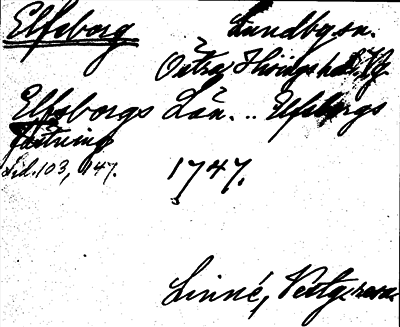 Elfsborg Lundby sn.
Östra Hisings hd. Vg.
Elfsborgs Län... Elfsborgs
fästning
sid. 103, 147. 1747.
Linné, Vestg. resa